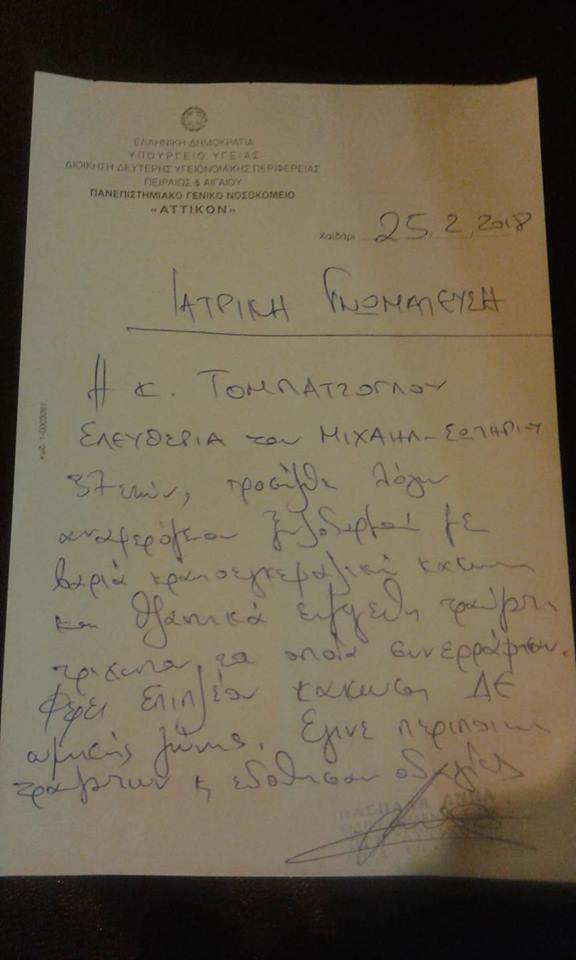 ΕΛΛΗΝΙΚΗ ΔΗΜΟΚΡΑΤΙΑ
ΥΠΟΥΡΓΕΙΟ ΥΓΕΙΑΣ
ΔΙΟΙΚΗΣΗ ΔΕΥΤΕΡΗΣ ΥΓΕΙΟΝΟΜΙΚΗΣ ΠΕΡΙΦΕΡΕΙΑΣ
ΠΕΙΡΑΙΩΣ & ΑΙΓΑΙΟΥ
ΠΑΝΕΠΙΣΤΗΜΙΑΚΟ ΓΕΝΙΚΟ ΝΟΣΟΚΟΜΕΙΟ
«ΑΤΤΙΚΟΝ»
Χαϊδάρι 25, 2, 2018
ΙΑΤΡΙΚΗ ΓΝΩΜΑΤΕΥΣΗ
Η κ. ΤΟΜΠΑΤΖΟΓΛΟΥ
ΕΛΕΥΘΕΡΙΑ του ΜΙΧΑΗΛ-ΣΩΤΗΡΙΟΥ
37 ετών, προσήλθε λόγω
αναφερόμενου ξυλοδαρμού με
βαριά κρανιοεγκεφαλική κάκωση
και θλαστικά τραύματα
τριχωτού τα οποία συνερράφησαν.
Φέρει επιπλέον κάκωση ΔΕ
ωμικής ζώνης. Έγινε περιποίηση
τραυμάτων κ εδόθησαν οδηγίες